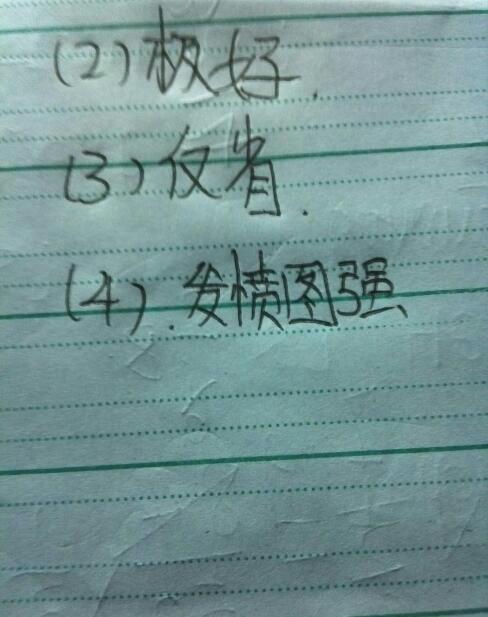 (2) 极好.
(3) 仅省.
(4). 发愤图强